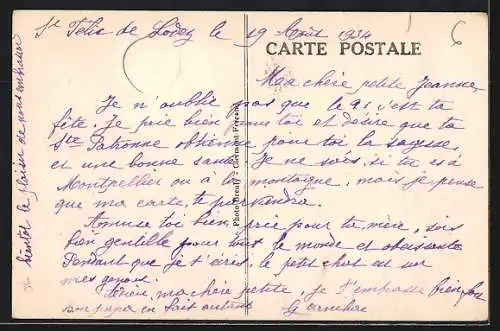 St Félix de Lodez le 19 Août 1934
CARTE POSTALE
6
Ma chère petite Jeanne,
Je n'oublie pas que le 21 c'est ta
fête. Je prie bien pour toi et désire que ta
Ste Patronne obtienne pour toi la sagesse
et une bonne santé. Je ne sais si tu es à
Montpellier ou à la montagne, mais je pense
que ma carte te parviendra.
Amuse toi bien, prie pour ta mère, sois
bien gentille pour tout le monde et obéissante
Pendant que je t'écris, le petit chat est sur
mes genoux.
ma chère petite, je t'embrasse bien fort
ton papa en fait autant
bientôt le plaisir de vous embrasser
Photo Clermont Ferrand